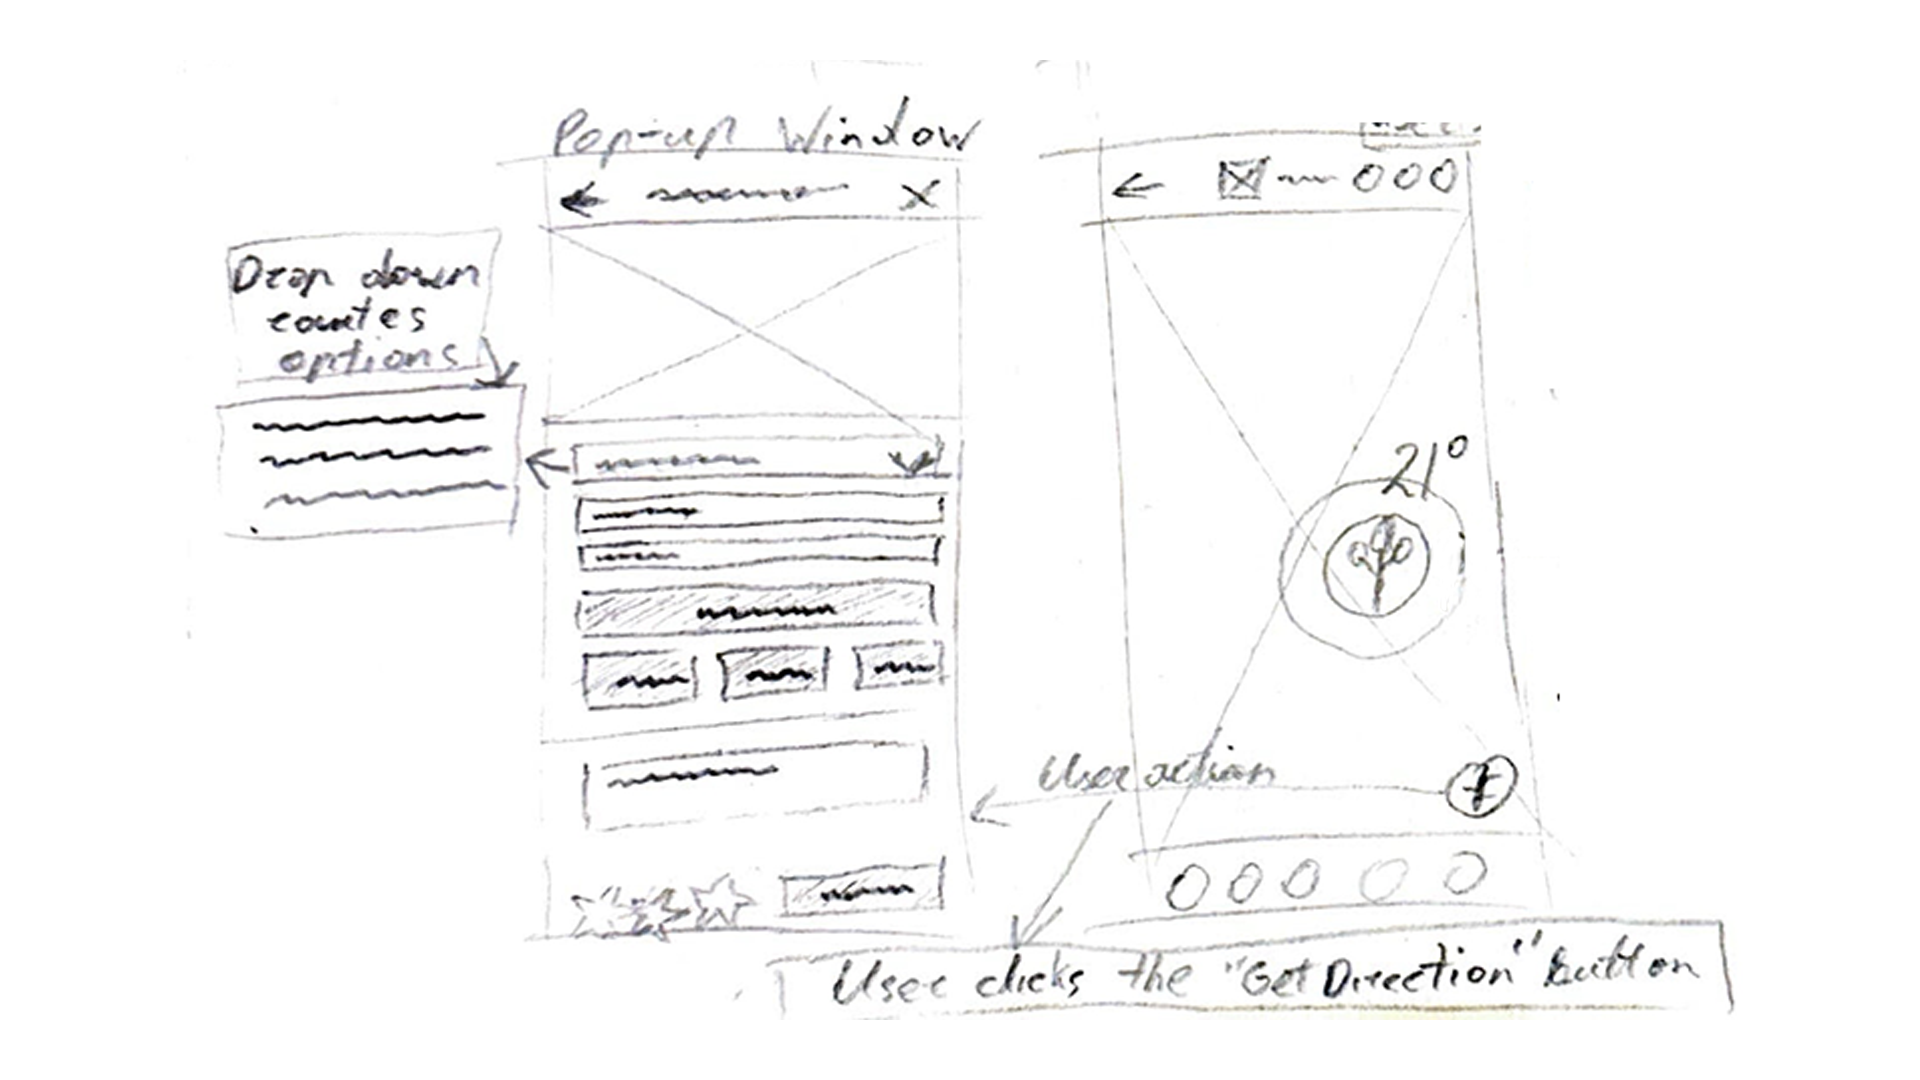 Pop-up Window
Drop down
routes
options
21°
User action
User clicks the "Get Direction" button